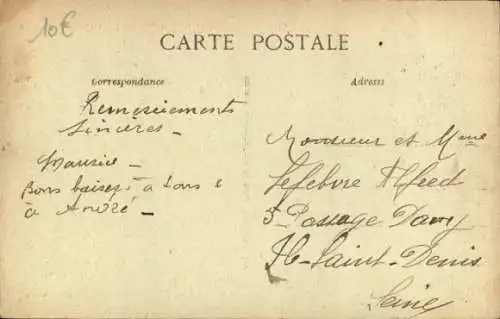 10€
CARTE POSTALE
Correspondance
Remerciements
Sincères -
Maurice -
Bons baisers à tous &
à André -
Adresse
Monsieur et Mme
Lefebvre Alfred
5 - Passage Davy
St-Denis
Seine